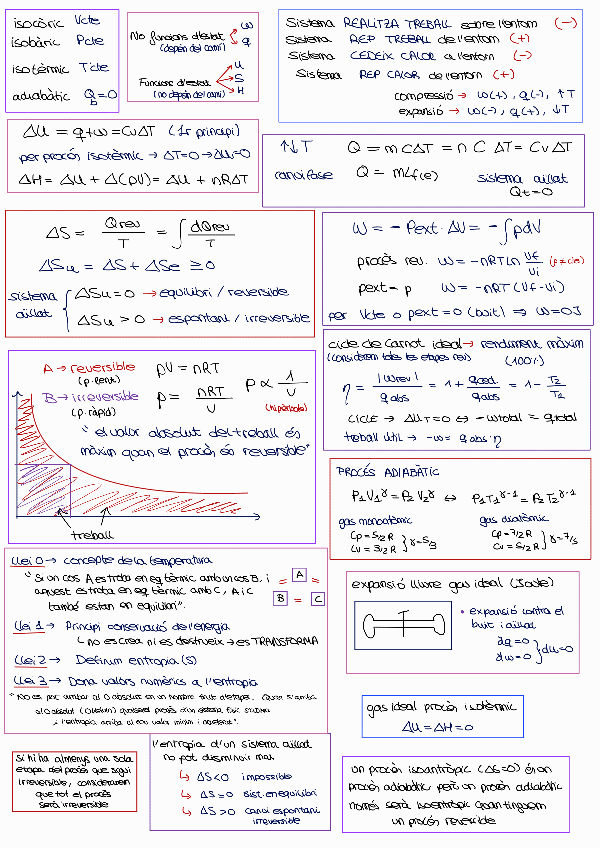 isocòric Vcte
isobàric Pcte
isotèrmic Tcte
adiabàtic Q=0
No funcions d'estat
(depèn del camí)
w
q
Funcions d'estat
(no depèn del camí)
U
S
H
Sistema REALITZA TREBALL sobre l'entorn (-)
Sistema REP TREBALL de l'entorn (+)
Sistema CEDEIX CALOR a l'entorn (-)
Sistema REP CALOR de l'entorn (+)
compressió → w(+), q(-), ↑T
expansió → w(-), q(+), ↓T
ΔU = q+w = CvΔT (1r principi)
per procés isotèrmic → ΔT=0 → ΔU=0
ΔH = ΔU + Δ(pV) = ΔU + nRΔT
↑↓T Q = mCΔT = n C ΔT = CvΔT
canvi fase Q = mLf(e)
sistema aïllat
Qt=0
ΔS = Qrev/T = ∫ dQrev/T
ΔSu = ΔS + ΔSe ≥ 0
sistema aïllat
ΔSu = 0 → equilibri / reversible
ΔSu > 0 → espontani / irreversible
W = - Pext · ΔV = - ∫pdV
procés rev. W = -nRT Ln Vf/Vi (p≠cte)
pext = p W = -nRT (Vf-Vi)
per Vcte o pext=0 (buit) ⇒ W=0J
A → reversible
(p. lent)
B → irreversible
(p. ràpid)
pV = nRT
p = nRT/V
p ∝ 1/V
(hipèrbola)
"el valor absolut del treball és
màxim quan el procés és reversible"
treball
cicle de Carnot ideal → rendiment màxim
(considerem totes les etapes rev) (100%)
η = |Wrev|/q abs = 1 + q ced./q abs = 1 - T2/T1
cicle → ΔUT=0 ⇔ -wtotal = q total
treball útil → -w = q abs · η
PROCÉS ADIABÀTIC
P1V1^γ = P2V2^γ ⇔ P1T1^γ-1 = P2T2^γ-1
gas monoatòmic
Cp = 5/2 R
Cv = 3/2 R
γ = 5/3
gas diatòmic
Cp = 7/2 R
Cv = 5/2 R
γ = 7/5
Llei 0 → concepte de la temperatura
"Si un cos A està en eq. tèrmic amb un cos B, i
aquest està en eq. tèrmic amb C, A i C
també estan en equilibri".
A
B = C
Llei 1 → Principi conservació de l'energia
↳ no es crea ni es destrueix → es TRANSFORMA
Llei 2 → Definim entropia (S)
Llei 3 → Dona valors numèrics a l'entropia
"No es pot arribar al 0 absolut en un nombre finit d'etapes. Quan s'arriba
al 0 absolut (0 kelvin) qualsevol procés d'un sistema físic s'atura
i l'entropia arriba al seu valor mínim i constant".
expansió lliure gas ideal (Joule)
• expansió contra el
buit i aïllat
dq = 0
dw = 0
dU = 0
gas ideal procés isotèrmic
ΔU = ΔH = 0
si hi ha almenys una sola
etapa del procés que sigui
irreversible, considerarem
que tot el procés
serà irreversible
l'entropia d'un sistema aïllat
no pot disminuir mai
↳ ΔS<0 impossible
↳ ΔS=0 sist. en equilibri
↳ ΔS>0 canvi espontani
irreversible
un procés isoentròpic (ΔS=0) és un
procés adiabàtic però un procés adiabàtic
només serà isoentròpic quan tinguem
un procés reversible